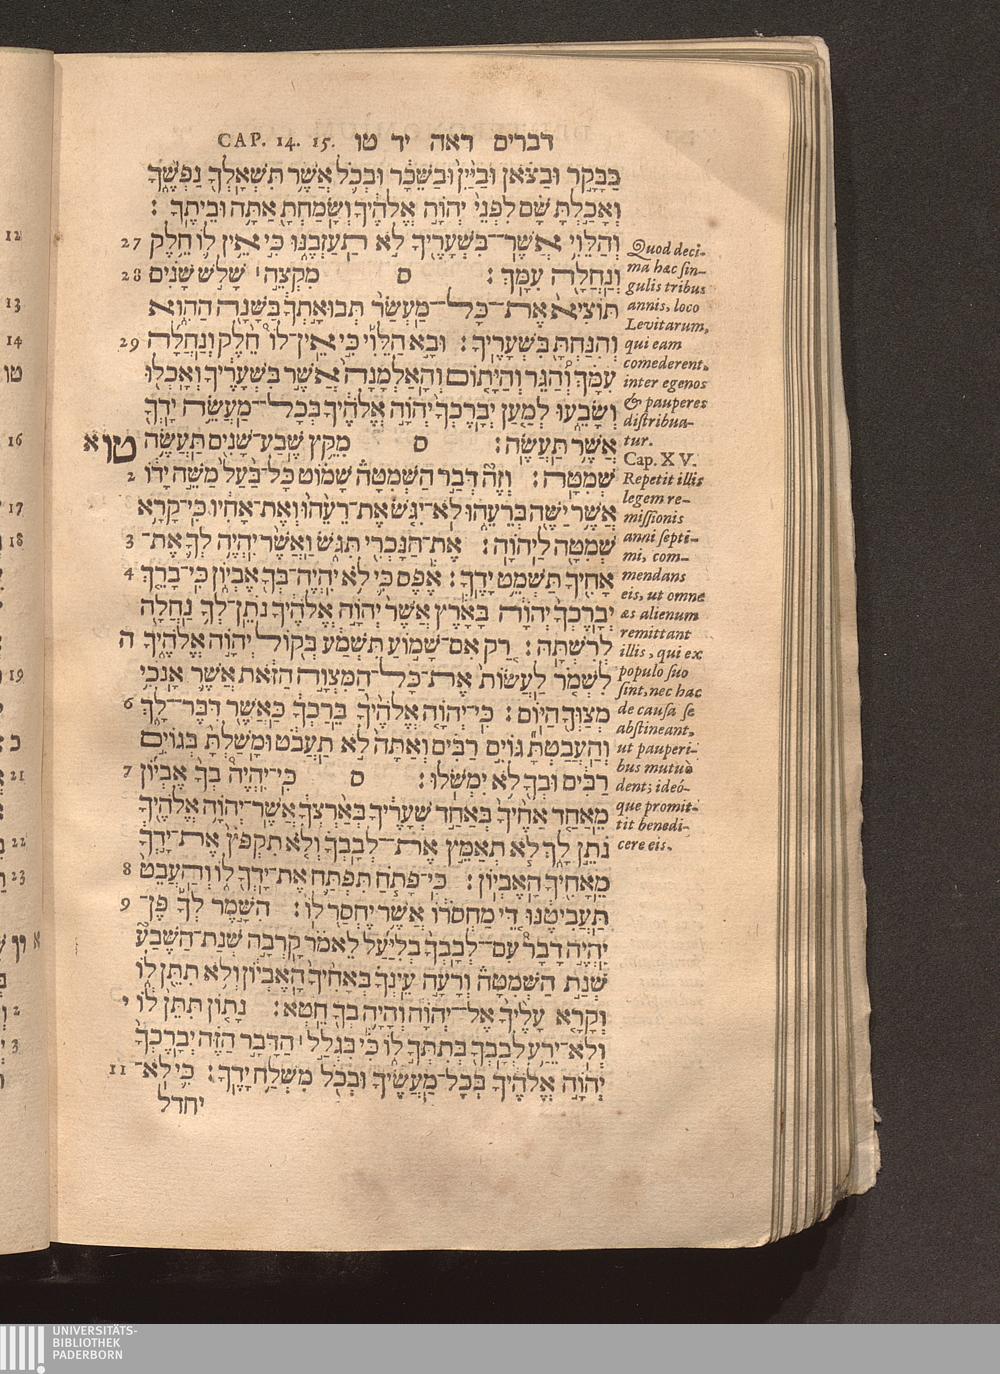 דברים ראה יד טו CAP. 14. 15.
בַּבָּקָר וּבַצֹּאן וּבַיַּיִן וּבַשֵּׁכָר וּבְכֹל אֲשֶׁר תִּשְׁאָלְךָ נַפְשֶׁךָ
וְאָכַלְתָּ שָּׁם לִפְנֵי יְהוָֹה אֱלֹהֶיךָ וְשָׂמַחְתָּ אַתָּה וּבֵיתֶךָ :
וְהַלֵּוִי אֲשֶׁר־בִּשְׁעָרֶיךָ לֹא תַעַזְבֶנּוּ כִּי אֵין לוֹ חֵלֶק 27
וְנַחֲלָה עִמָּךְ : ס מִקְצֵה ׀ שָׁלֹשׁ שָׁנִים 28
תּוֹצִיא אֶת־כָּל־מַעְשַׂר תְּבוּאָתְךָ בַּשָּׁנָה הַהִוא
וְהִנַּחְתָּ בִּשְׁעָרֶיךָ : וּבָא הַלֵּוִי כִּי אֵין־לוֹ חֵלֶק וְנַחֲלָה 29
עִמָּךְ וְהַגֵּר וְהַיָּתוֹם וְהָאַלְמָנָה אֲשֶׁר בִּשְׁעָרֶיךָ וְאָכְלוּ
וְשָׂבֵעוּ לְמַעַן יְבָרֶכְךָ יְהוָֹה אֱלֹהֶיךָ בְּכָל־מַעֲשֵׂה יָדְךָ
אֲשֶׁר תַּעֲשֶׂה : ס מִקֵּץ שֶׁבַע־שָׁנִים תַּעֲשֶׂה טו א
שְׁמִטָּה : וְזֶה דְּבַר הַשְּׁמִטָּה שָׁמוֹט כָּל־בַּעַל מַשֵּׁה יָדוֹ 2
אֲשֶׁר יַשֶּׁה בְּרֵעֵהוּ לֹא־יִגֹּשׂ אֶת־רֵעֵהוּ וְאֶת־אָחִיו כִּי־קָרָא
שְׁמִטָּה לַיהוָֹה : אֶת־הַנָּכְרִי תִּגֹּשׂ וַאֲשֶׁר יִהְיֶה לְךָ אֶת־ 3
אָחִיךָ תַּשְׁמֵט יָדֶךָ : אֶפֶס כִּי לֹא יִהְיֶה־בְּךָ אֶבְיוֹן כִּי־בָרֵךְ 4
יְבָרֶכְךָ יְהוָֹה בָּאָרֶץ אֲשֶׁר יְהוָֹה אֱלֹהֶיךָ נֹתֵן־לְךָ נַחֲלָה
לְרִשְׁתָּהּ : רַק אִם־שָׁמוֹעַ תִּשְׁמַע בְּקוֹל יְהוָֹה אֱלֹהֶיךָ ה
לִשְׁמֹר לַעֲשׂוֹת אֶת־כָּל־הַמִּצְוָה הַזֹּאת אֲשֶׁר אָנֹכִי
מְצַוְּךָ הַיּוֹם : כִּי־יְהוָֹה אֱלֹהֶיךָ בֵּרַכְךָ כַּאֲשֶׁר דִּבֶּר־לָךְ 6
וְהַעֲבַטְתָּ גּוֹיִם רַבִּים וְאַתָּה לֹא תַעֲבֹט וּמָשַׁלְתָּ בְּגוֹיִם
רַבִּים וּבְךָ לֹא יִמְשֹׁלוּ : ס כִּי־יִהְיֶה בְךָ אֶבְיוֹן 7
מֵאַחַד אַחֶיךָ בְּאַחַד שְׁעָרֶיךָ בְּאַרְצְךָ אֲשֶׁר־יְהוָֹה אֱלֹהֶיךָ
נֹתֵן לָךְ לֹא תְאַמֵּץ אֶת־לְבָבְךָ וְלֹא תִקְפֹּץ אֶת־יָדְךָ
מֵאָחִיךָ הָאֶבְיוֹן : כִּי־פָתֹחַ תִּפְתַּח אֶת־יָדְךָ לוֹ וְהַעֲבֵט 8
תַּעֲבִיטֶנּוּ דֵּי מַחְסֹרוֹ אֲשֶׁר יֶחְסַר לוֹ : הִשָּׁמֶר לְךָ פֶּן־ 9
יִהְיֶה דָבָר עִם־לְבָבְךָ בְלִיַּעַל לֵאמֹר קָרְבָה שְׁנַת־הַשֶּׁבַע
שְׁנַת הַשְּׁמִטָּה וְרָעָה עֵינְךָ בְּאָחִיךָ הָאֶבְיוֹן וְלֹא תִתֵּן לוֹ
וְקָרָא עָלֶיךָ אֶל־יְהוָֹה וְהָיָה בְךָ חֵטְא : נָתוֹן תִּתֵּן לוֹ י
וְלֹא־יֵרַע לְבָבְךָ בְּתִתְּךָ לוֹ כִּי בִּגְלַל ׀ הַדָּבָר הַזֶּה יְבָרֶכְךָ
יְהוָֹה אֱלֹהֶיךָ בְּכָל־מַעֲשֶׂיךָ וּבְכֹל מִשְׁלַח יָדֶךָ : כִּי לֹא־ 11
יחדל
Quod deci-
ma hæc sin-
gulis tribus
annis, loco
Levitarum,
qui eam
comederent,
inter egenos
& pauperes
distribua-
tur.
Cap. XV.
Repetit illis
legem re-
missionis
anni septi-
mi, com-
mendans
eis, ut omne
æs alienum
remittant
illis, qui ex
populo suo
sint, nec hac
de causa se
abstineant,
ut pauperi-
bus mutuò
dent; ideó-
que promit-
tit benedi-
cere eis.
12
13
14
טו
16
17
18
19
כ
21
22
23
א
2
3
UNIVERSITÄTS-
BIBLIOTHEK
PADERBORN